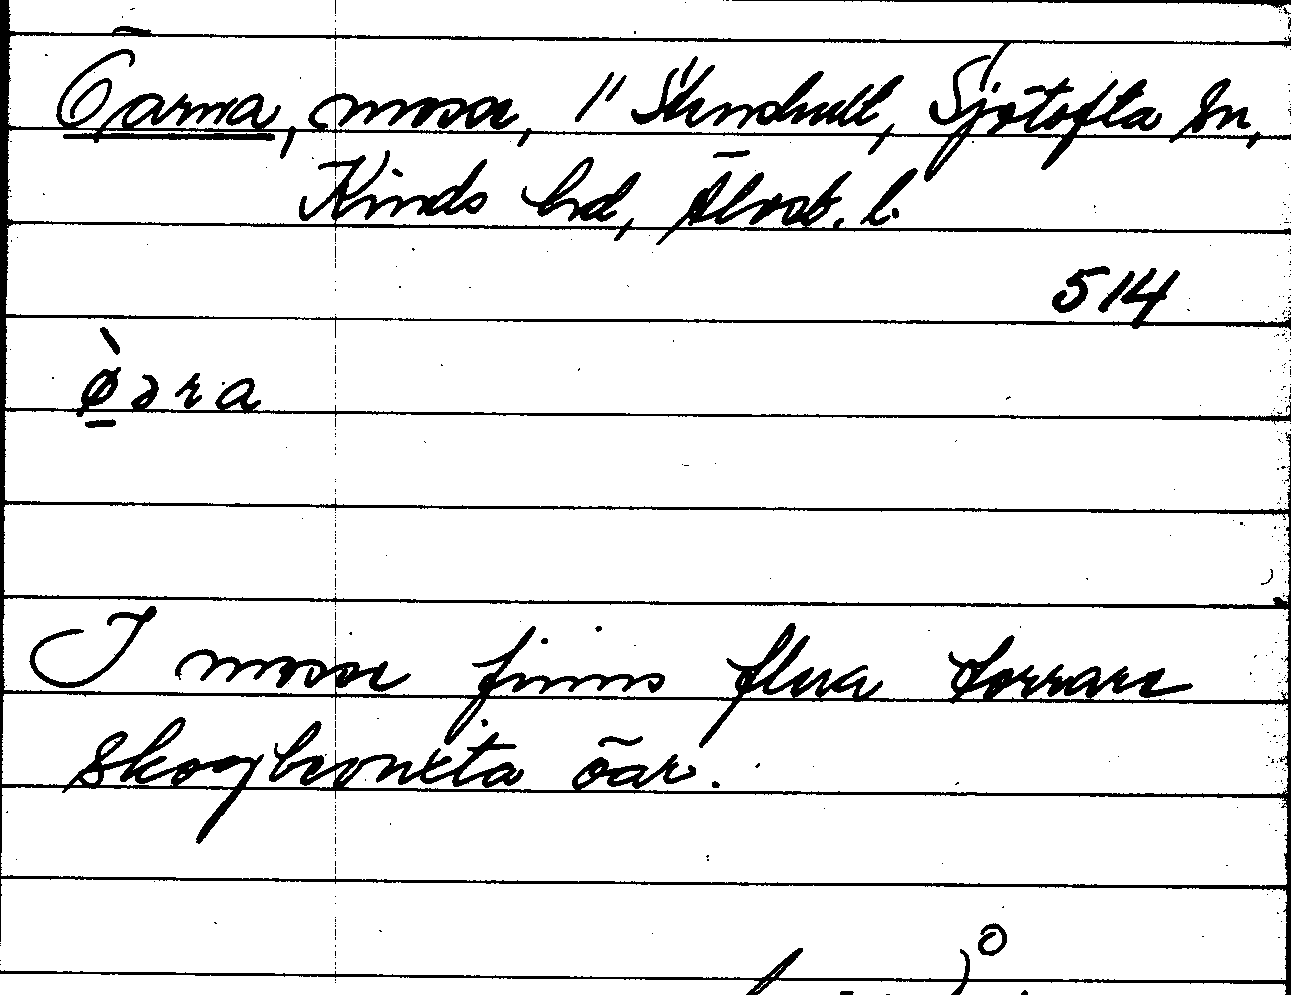 Öarna, mosse, 1" Stendhult, Sjötofta sn,
Kinds hd, Älvsb. l.
514
ø̀ə r a
I mosse finns flera torrare
skogbevuxta öar.